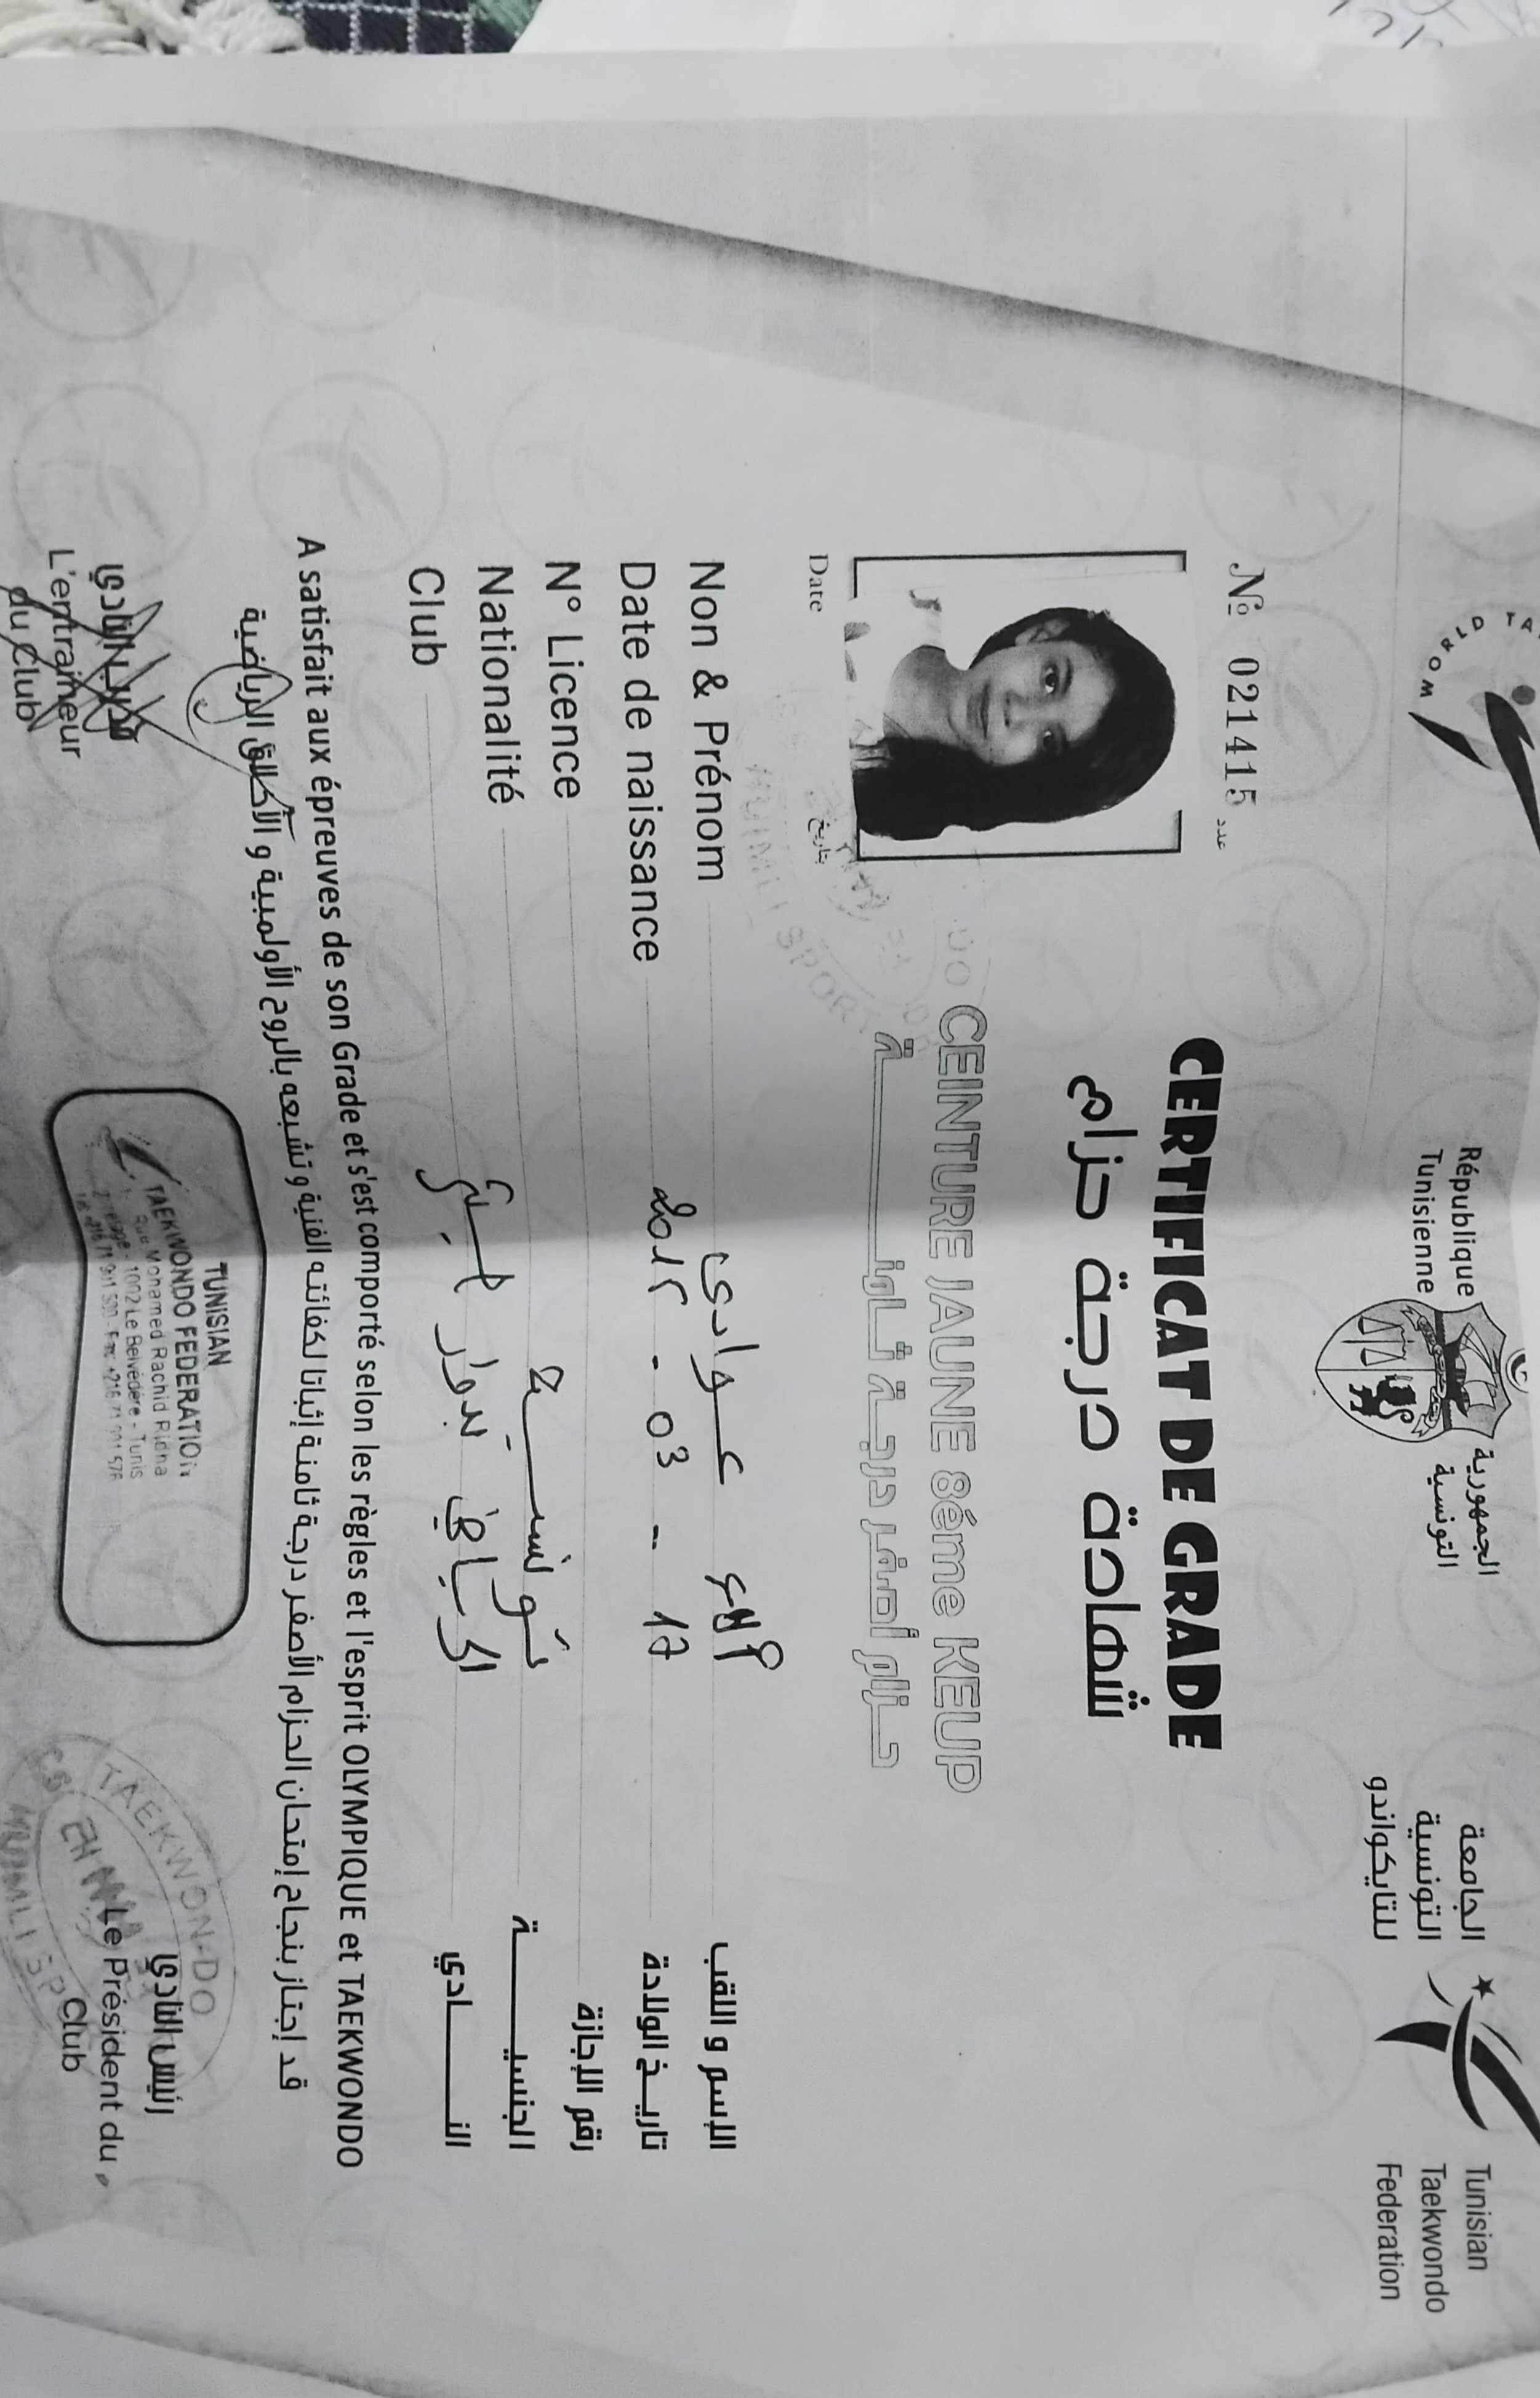 WORLD TA
République
Tunisienne
الجمهورية
التونسية
الجامعة
التونسية
للتايكواندو
Tunisian
Taekwondo
Federation
№ 021415 عدد
CERTIFICAT DE GRADE
شهادة درجة حزام
CEINTURE JAUNE 8éme KEUP
حزام أصفر درجة ثامنة
Date بتاريخ
Non & Prénom عوادي الإسم و اللقب
Date de naissance 2012 - 03 - 17 تاريخ الولادة
N° Licence رقم الإجازة
Nationalité تونسية الجنسية
Club النادي
A satisfait aux épreuves de son Grade et s'est comporté selon les règles et l'esprit OLYMPIQUE et TAEKWONDO
قد إجتاز بنجاح إمتحان الحزام الأصفر درجة ثامنة إثباتا لكفائته الفنية و تشبعه بالروح الأولمبية و الأخلاق الرياضية
مدرب النادي
L'entraineur
du Club
TUNISIAN
TAEKWONDO FEDERATION
Rue Mohamed Rachid Ridha
1002 Le Belvédère - Tunis
رئيس النادي
Le Président du
Club
TAEKWON-DO